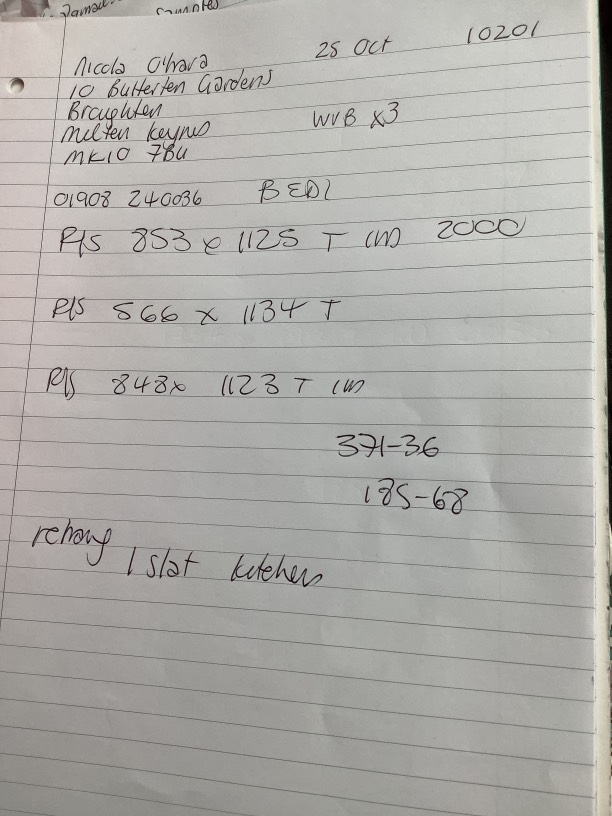 Samples
Nicola O'Hara 25 Oct 10201
10 Butterten Gardens
Broughten
Milten Keynes WVB x3
MK10 7BU
01908 240036 BED1
R/S 853 x 1125 T (W) 2000
R/S 566 x 1134 T
R/S 848x 1123 T (W)
371-36
185-68
rehang
1 slat kitchen